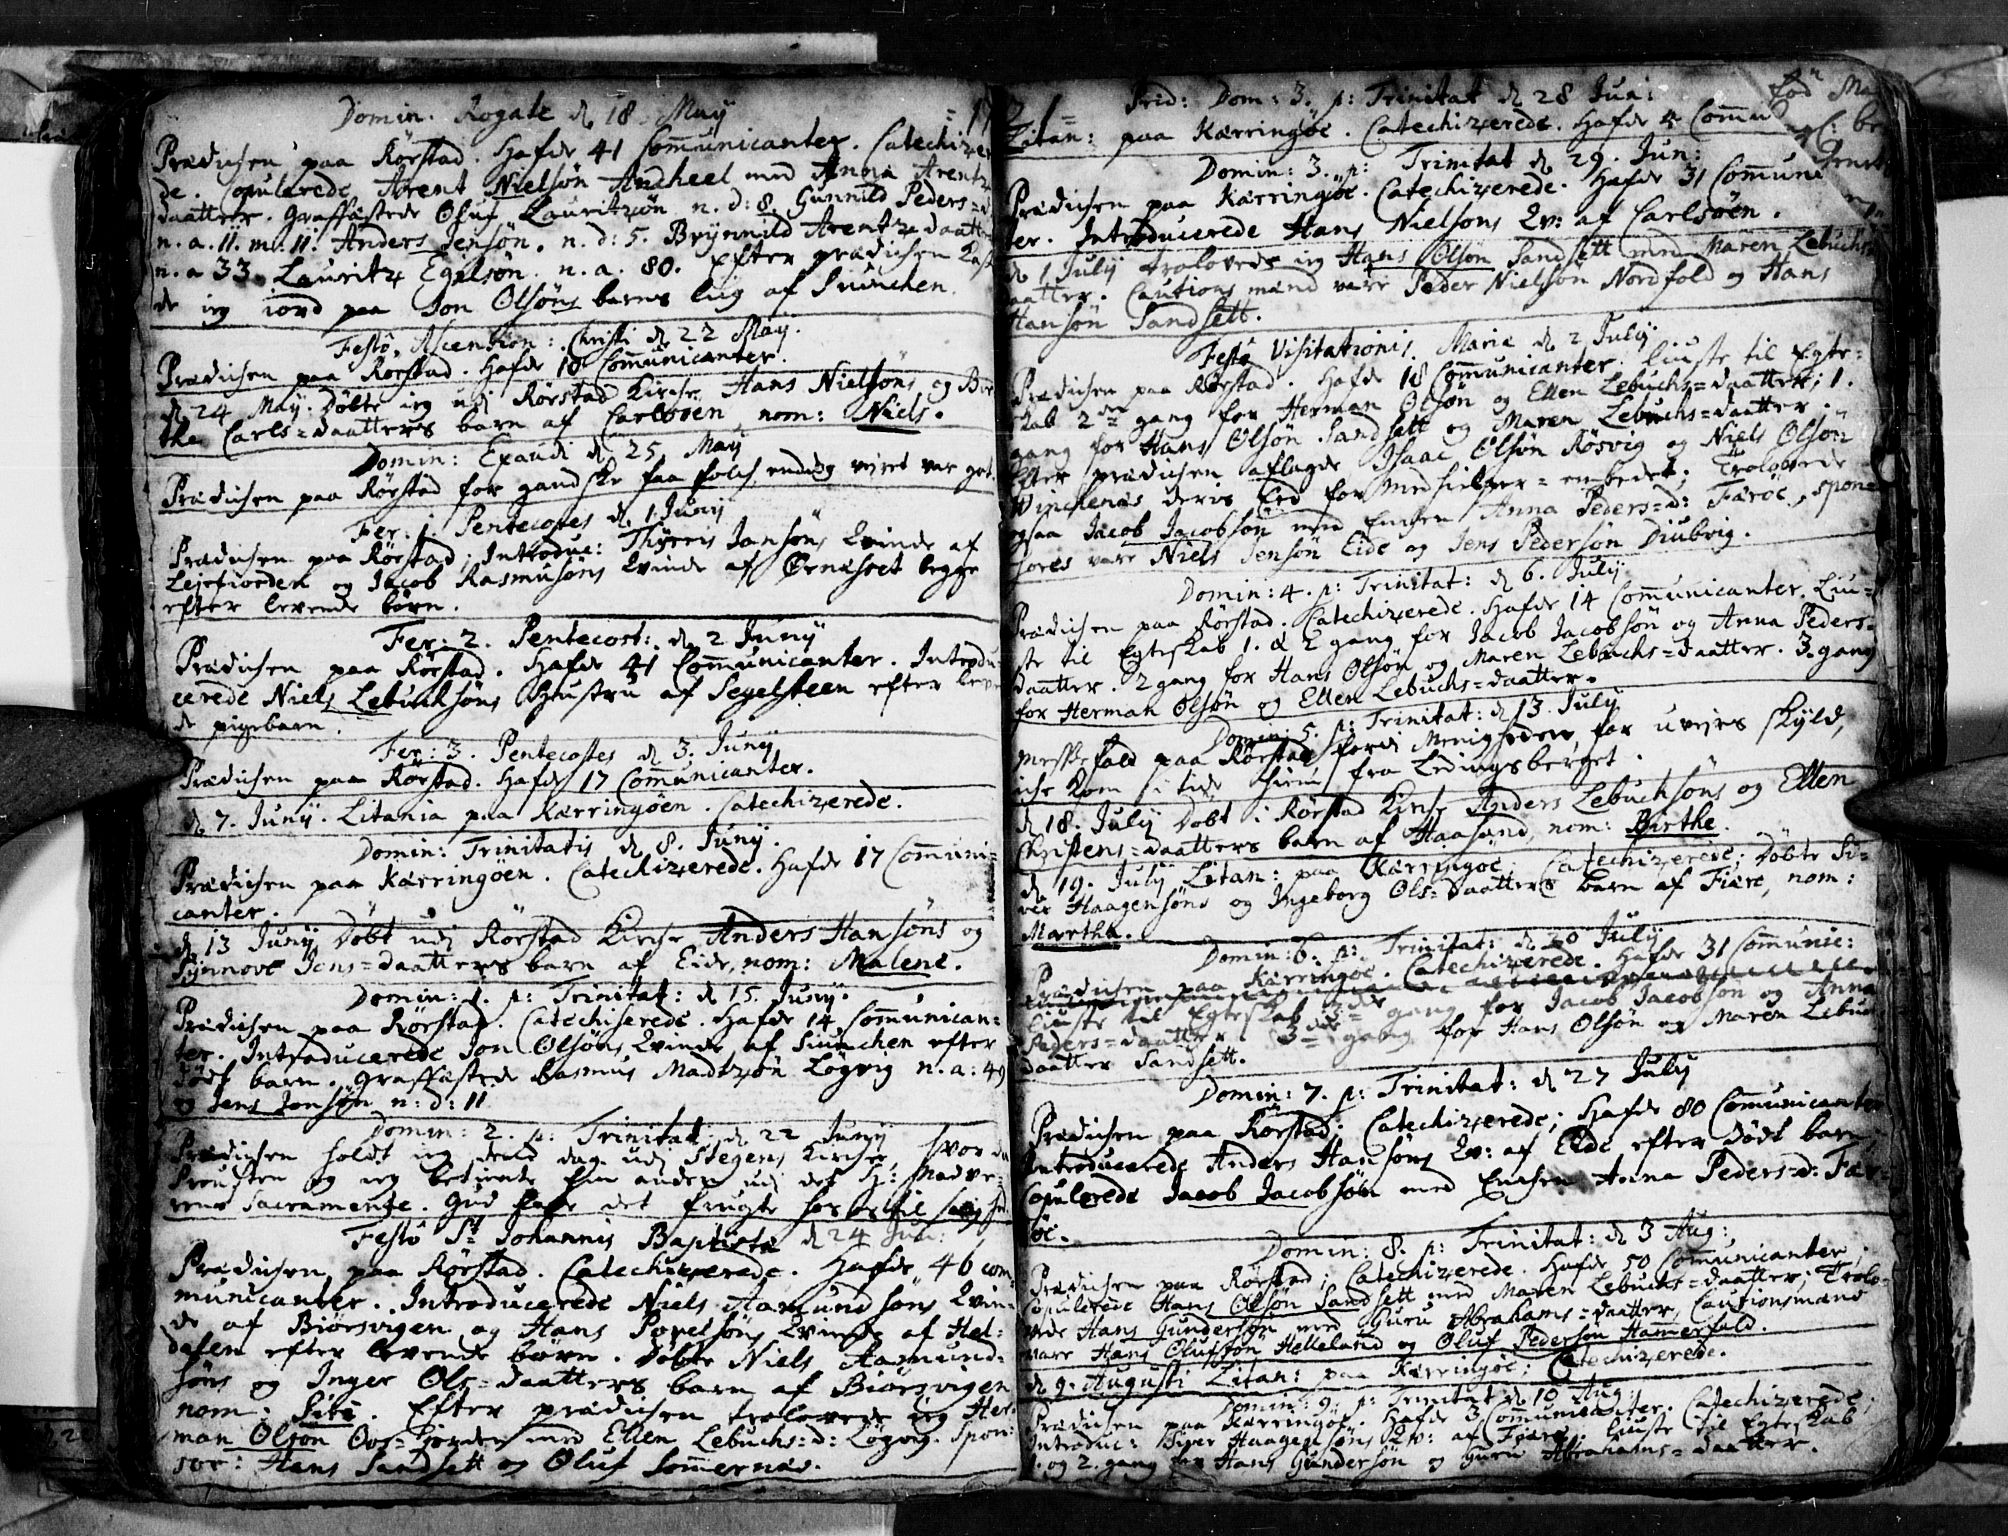 Domin. Rogate d. 18. May = 17
Prædichen paa Rörstad. Hafde 41 Communicanter. Catechizere
de. Copulerede Arent Nielsön Andheel med Anna Arentz
daatter. Graffæstede Oluf Lauritzön n. d: 8. Gunnild Peders=d
n. a. 11. m. 11. Anders Jensön. n. d: 5. Brynnild Arentz daatter
n. a 33. Lauritz Egelsön. n. a. 80. Efter prædichen kast
de ieg iord paa Jon Olsöns barns liig af
Festo Ascension: Christi d. 22 May.
Prædichen paa Rörstad. Hafde 10 Communicanter.
d. 24 May. Döbte ieg udj Rörstad Kirche Hans Nielsöns og Bir
the Carls=daatters barn af Carlsöen nom: Niels.
Domin: Exaudi d. 25. May
Prædichen paa Rörstad for gandske faa folch, endog veiret var got.
Fer: 1. Pentecostes d. 1. Juny
Prædichen paa Rörstad; Introduc: Thyrris Jonsöns Qvinde af
Lejrfiorden og Jacob Rasmusöns Qvinde af begge
efter levende börn.
Fer: 2. Pentecost: d. 2 Juny
Prædichen paa Rörstad. Hafde 41 Communicanter. Introdu-
cerede Niels Lebuchsöns Hustru af Segelsteen efter leven
de pigebarn.
Fer: 3. Pentecostes d. 3. Juny
Prædichen paa Rörstad. Hafde 17 Communicanter.
d. 7. Juny. Litania paa Kærringöen. Catechizerede.
Domin: Trinitatis d. 8. Juny.
Prædichen paa Kærringöen. Catechizerede. Hafde 17 Communi=
canter.
d. 13 Juny Döbt udj Rörstad Kirche Anders Hansöns og
Synnove Jens=daatters barn af Eide, nom: Malene.
Domin: 1. p: Trinitat: d. 15. Juny.
Prædichen paa Rörstad. Catechiserede. Hafde 14 Communican=
ter. Introducerede Jon Olsöns Qvinde af efter
dödt barn. Graffæstede Rasmus Madtzön Lögvig n. a: 49
og Jens Jonsön n: d: 11
Domin: 2. p: Trinitat: d. 22 Juny
Prædichen holdt ieg dend dag udj Stegens Kirche, hvor da
Prousten og ieg betiente hin anden udj det H: Nadve=
rens Sacramente. Gud lade det frugte hos os til
Festo St Johannis Baptistæ d. 24 Jun:
Prædichen paa Rörstad. Catechizerede. Hafde 46 com=
municanter. Introducerede Niels Aamundsöns Qvin=
de af Biörsvigen og Hans Povelsöns Qvinde af Hel=
dalen efter levende börn. Döbte Niels Aamund=
söns og Inger Ols=daatters barn af Biörsvigen
nom: Siti. Efter prædichen trolovede ieg Her=
man Olsön med Ellen Lebuchs=d: Lögvig. Spon=
sor: Hans Sandsett og Oluf Sommernæs.
21 = Prid: Dom: 3. p: Trinitat d. 28 Jun:
Litan: paa Kærringöe. Catechizerede. Hafde 4 Commu
Domin: 3. p: Trinitat d. 29. Jun:
Prædichen paa Kærringöe. Catechizerede. Hafde 31 Communi
ter. Introducerede Hans Nielsöns Qv: af Carlsöen.
d. 1 July trolovede ieg Hans Olsön Sandsett med Maren Lebuchs
daatter. Cautions mænd vare Peder Nielsön Nordfold og Hans
Hansön Sandsett.
Festo Visitationis Mariæ d. 2 July
Prædichen paa Rörstad. Hafde 18 Communicanter. Liuste til Egte=
skab 2den gang for Herman Olsön og Ellen Lebuchs=daatter; 1.
gang for Hans Olsön Sandsett og Maren Lebuchs=daatter.
Efter prædichen aflagde Isaac Olsön Rösvig og Niels Olsön
Winchenes deris Eed for Medhielper=embedet; Trolovede
ogsaa Jacob Jacobsön med Enchen Anna Peders=d: Færöe, spon=
sores vare Niels Jensön Eide og Jens Pedersön Diubvig.
Domin: 4. p: Trinitat: d. 6. July
Prædichen paa Rörstad. Catechizerede. Hafde 14 Communicanter. Liu=
ste til Egteskab 1. & 2 gang for Jacob Jacobsön og Anna Peders=
daatter. 2 gang for Hans Olsön og Maren Lebuchs=daatter. 3. gang
for Herman Olsön og Ellen Lebuchs=daatter.
Domin: 5. p: Trinitat: d. 13. July
Messefald paa Rörstad fordi Menigheden, for uveirs skyld,
iche kom i tide hiem fra Ledingsberget.
d. 18. July Döbt i Rörstad Kirche Anders Lebuchsöns og Ellen
Christens=daatters barn af Haasand, nom: Birthe.
d. 19. July Litan: paa Kærringöe; Catechizerede; Döbte Si=
ver Haagensöns og Ingeborg Ols=daatters barn af Fiære, nom:
Marthe.
Domin: 6. p: Trinitat: d. 20 July
Prædichen paa Kærringöe. Catechizerede. Hafde 31 Communic:
Liuste til Egteskab 3de gang for Jacob Jacobsön og Anna
Peders=daatter. 3de gang for Hans Olsön og Maren Lebuc
daatter Sandsett.
Domin: 7. p: Trinitat: d. 27 July
Prædichen paa Rörstad; Catechizerede; Hafde 80 Communicanter
Introducerede Anders Hansöns Qv: af Eide efter dödt barn;
Copulerede Jacob Jacobsön med Enchen Anna Peders=d: Fær=
öe.
Domin: 8. p: Trinitat: d. 3 Aug:
Prædichen paa Rörstad; Catechizerede. Hafde 50 Communicanter;
Copulerede Hans Olsön Sandsett med Maren Lebuchs=daatter; Trolo=
vede Hans Gundersön med Guru Abrahams=daatter, Cautionsmænd
vare Hans Olufsön Helleland og Oluf Pedersön Hammerfald.
d. 9. Augusti Litan: paa Kærringöe; Catechizerede.
Domin: 9. p: Trinitat d. 10 Aug:
Prædichen paa Kærringöe. Hafde 3 Communicanter. Catechizerede;
Introduc: Siver Haagensöns Qv: af Fiære; Liuste til Egteskab
1. og 2. gang for Hans Gundersön og Guru Abrahams=daatter.